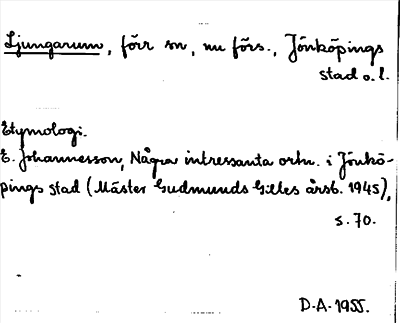 Ljungarum, förr sn, nu förs., Jönköpings
stad o. l.
Etymologi.
E. Johannesson, Några intressanta ortn. i Jönkö-
pings stad (Mäster Gudmunds Gilles årsb. 1945),
s. 70.
D.A. 1955.